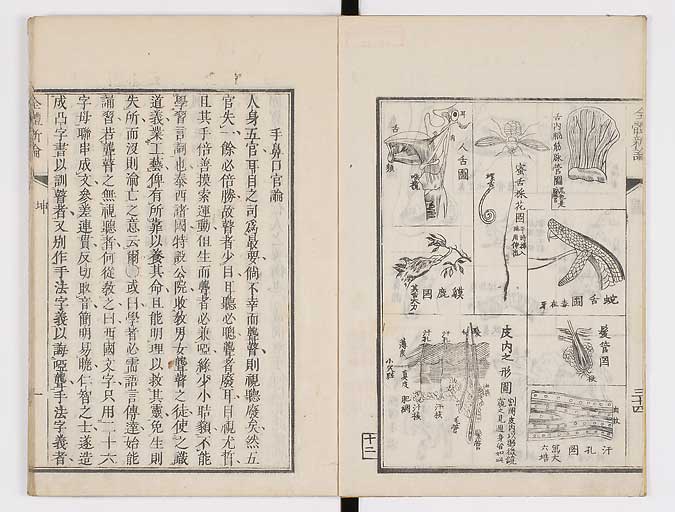 全體新論
三十四
舌內腦筋脉管圖
蜜舌採花圖
人舌圖
耳
舌
類
喉管
蛇舌圖
毒在牙
鹿圖
髮管圖
核
皮內之形圖
汗孔
汗孔
油核
毛管
汗核
肥網
真皮
薄皮
汗孔圖
寫大六倍
十二
手鼻口官論
人身五官耳目之司爲最要倘不幸而聾瞽則視聽廢矣然五
官失一餘必倍勝故瞽者少目耳聽必聰聾者廢耳目視尤哲
且其手倍善摸索運動但生而聾者必兼啞緣少小聆籟不能
學習言詞也泰西諸國特設公院收教男女聾瞽之徒使之識
道義業工藝俾有所靠以養其命且能明理以救其靈免生則
失所而沒則淪亡之意云爾○或曰學者必需語言傳達始能
誦習若聾瞽之無視聽者何從教之曰西國文字只用二十六
字母聯串成文參差連貫反切取音簡明易曉仁智之士遂造
成凸字書以訓瞽者又別作手法字義以誨啞聾手法字義者
全體新論
坤
一